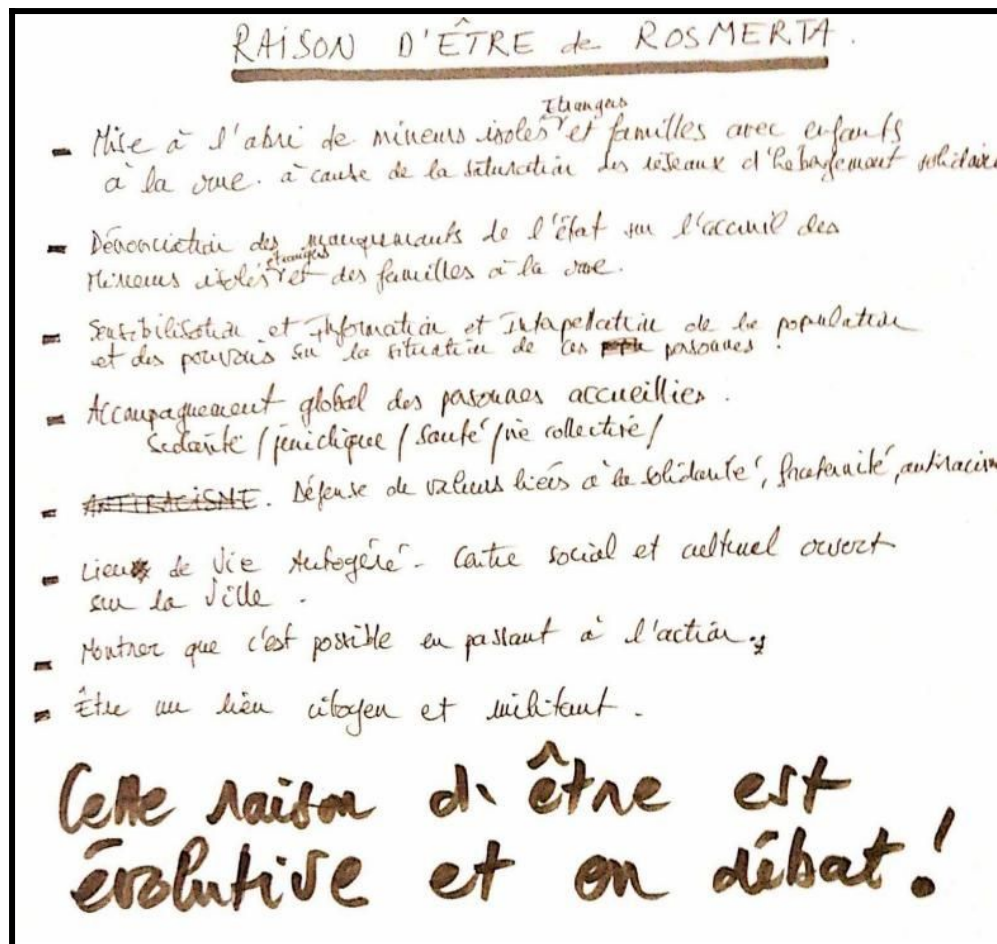 RAISON D'ÊTRE de ROSMERTA.
- Mise à l'abri de mineurs isolés étrangers et familles avec enfants
à la rue. à cause de la saturation des réseaux d'hébergement solidaires
- Dénonciation des manquements de l'état sur l'accueil des
Mineurs isolés étrangers et des familles à la rue.
- Sensibilisation et Information et Interpellation de la population
et des pouvoirs sur la situation de ces personnes.
- Accompagnement global des personnes accueillies.
Scolarité / juridique / Santé / vie collective /
- ANTIRACISME. Défense de valeurs liées à la solidarité, fraternité, antiracisme
- Lieu de Vie Autogéré - Centre social et culturel ouvert
sur la Ville.
- Montrer que c'est possible en passant à l'action.
- Être un lieu citoyen et militant.
Cette raison d'être est
évolutive et on débat !